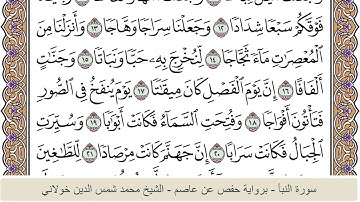 فَوْقَكُمْ سَبْعًا شِدَادًا ١٢ وَجَعَلْنَا سِرَاجًا وَهَّاجًا ١٣ وَأَنزَلْنَا مِنَ
الْمُعْصِرَاتِ مَاءً ثَجَّاجًا ١٤ لِّنُخْرِجَ بِهِ حَبًّا وَنَبَاتًا ١٥ وَجَنَّاتٍ
أَلْفَافًا ١٦ إِنَّ يَوْمَ الْفَصْلِ كَانَ مِيقَاتًا ١٧ يَوْمَ يُنفَخُ فِي الصُّورِ
فَتَأْتُونَ أَفْوَاجًا ١٨ وَفُتِحَتِ السَّمَاءُ فَكَانَتْ أَبْوَابًا ١٩ وَسُيِّرَتِ
الْجِبَالُ فَكَانَتْ سَرَابًا ٢٠ إِنَّ جَهَنَّمَ كَانَتْ مِرْصَادًا ٢١ لِّلطَّاغِينَ
سورة النبأ - برواية حفص عن عاصم - الشيخ محمد شمس الدين خولاني